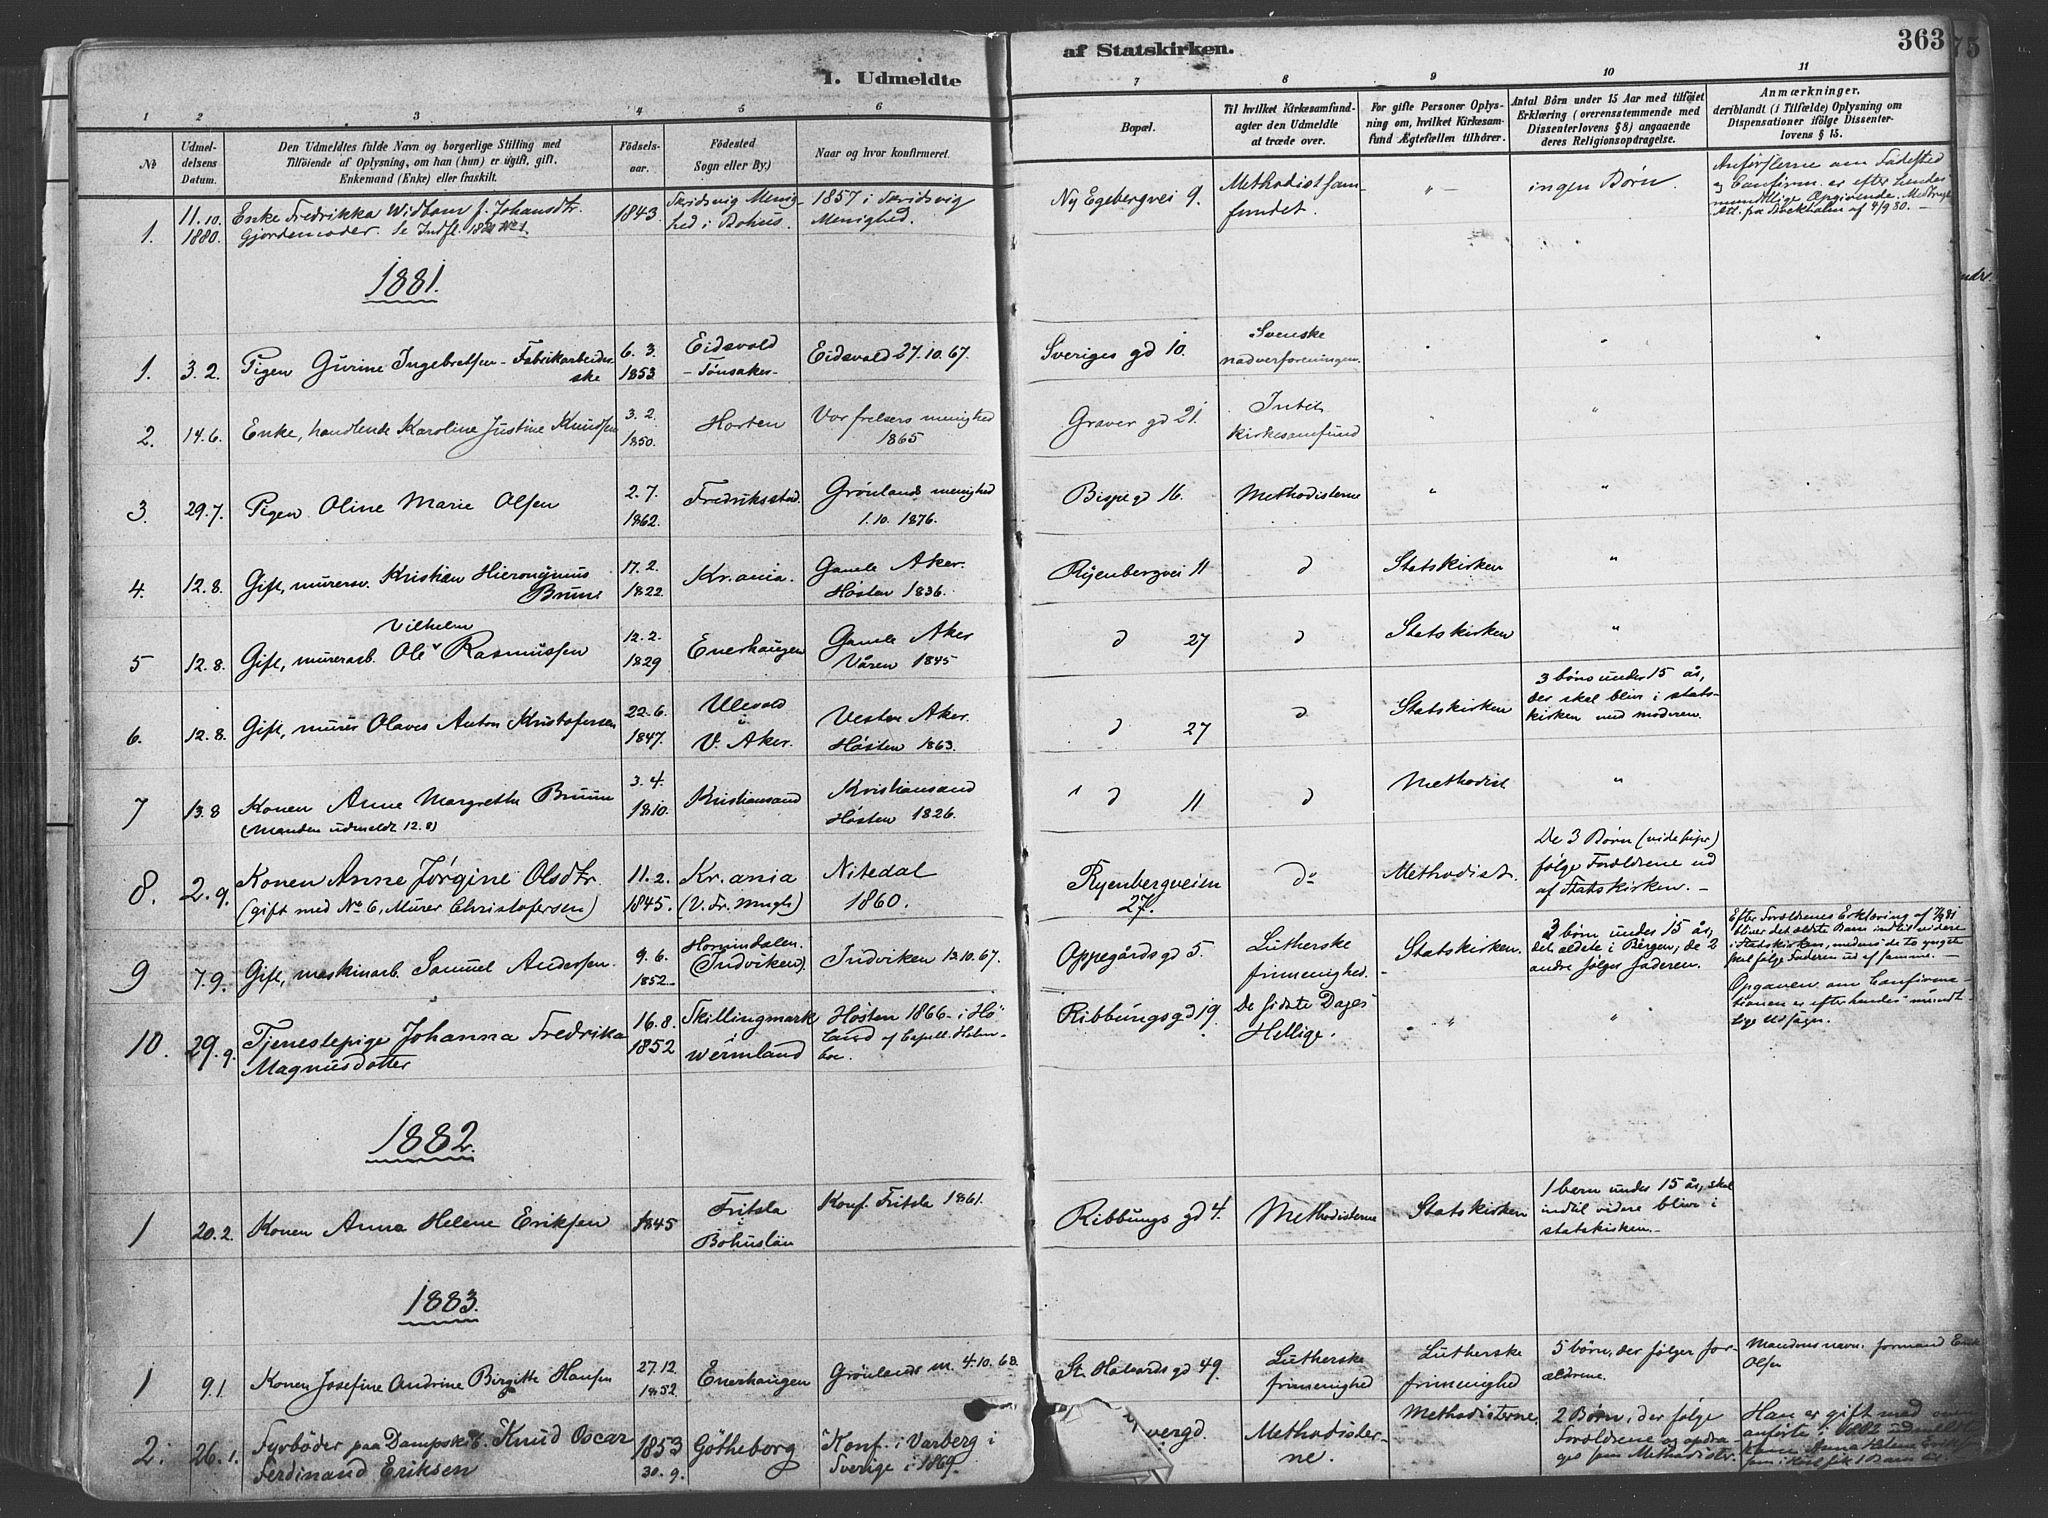 I. Udmeldte
af Statskirken.
363
75
1
2
3
4
5
6
7
8
9
10
11
No
Udmel-
delsens
Datum.
Den Udmeldtes fulde Navn og borgerlige Stilling med
Tilföiende af Oplysning, om han (hun) er ugift, gift,
Enkemand (Enke) eller fraskilt.
Födsels-
aar.
Födested
Sogn eller By.)
Naar og hvor konfirmeret.
Bopæl.
Til hvilket Kirkesamfund-
agter den Udmeldte
at træde over.
For gifte Personer Oplys-
ning om, hvilket Kirkesam-
fund Ægtefællen tilhörer.
Antal Börn under 15 Aar med tilföiet
Erklæring (overensstemmende med
Dissenterlovens § 8) angaaende
deres Religionsopdragelse.
Anmærkninger,
deriblandt (i Tilfælde) Oplysning om
Dispensationer ifölge Dissenter-
lovens § 15.
1.
11.10.
1880.
Enke Fredrikka Widbom f. Johansdtr.
Gjordemoder. Se Indfl. 1880 No 1.
1843.
Skridsvig Menig-
hed i Bohus.
1857 i Skridsvig
Menighed.
Ny Egebergvei 9.
Methodistsam-
fundet.
" —
ingen Børn.
Anførslerne om Fødested
og Confirm. er efter hendes
mundtlige Opgivende. Medbragt
Att. fra Stockholm af 4/9 80. —
1881.
1.
3. 2.
Pigen Gurine Ingebretsen - Fabrikarbeider-
ske
6. 3.
1853.
Eidsvold
- Tønsaker -
Eidsvold 27.10.67.
Sveriges gd 10.
Svenske
nadverforeningen.
"
"
2.
14.6.
Enke, handlende Karoline Justine Knudsen
3. 2.
1850.
Horten
Vor frelsers menighed
1865
Graver gd 21.
kirkesamfund
"
"
3.
29.7.
Pigen Oline Marie Olsen
2. 7.
1862.
Fredriksstad.
Grønlands menighed
1.10. 1876.
Bispe gd 16.
Methodisterne
"
"
4.
12.8.
Gift, murersv. Kristian Hieronymus
Bruun
17. 2.
1822.
Kr.ania.
Gamle Aker.
Høsten 1836.
Ryenbergvei 11
d
Statskirken
"
5
12.8.
Vilhelm
Gift, murerarb. Ole Rasmussen
12. 2.
1829
Enerhaugen
Gamle Aker
Våren 1845
d 27
d
Statskirken
"
6.
12.8.
Gift, murer Olaves Anton Kristofersen
22.6.
1847.
Ulevold
i
V. Aker.
Vestre Aker.
Høsten 1863.
d 27
d
Statskirken
3 børn under 15 år,
der skal bliv i stats-
kirken med moderen.
7
13.8
Konen Anne Margrethe Bruun
(Manden udmeldt 12.8)
3. 4.
1810.
Kristiansand
Kristiansand
Høsten 1826.
d 11
d
Methodist
"
8.
2.9.
Konen Anne Jørgine Olsdtr.
(gift med No 6, Murer Christofersen)
11.2.
1845.
Kr.ania
(V. Fr. Mngh)
Nitedal
1860.
Ryenbergveien
27.
do
Methodist.
De 3 Børn (vide supr)
følge Forældrene ud
af Statskirken. —
9
7.9.
Gift, maskinarb. Samuel Andersen.
9.6.
1852.
Hornindalen.
(Indviken).
Indviken 13.10.67.
Oppegårds gd 5.
Lutherske
frimenighed.
Statskirken.
3 børn under 15 år,
det ældste i Bergen; de 2
andre følger faderen.
Efter Forældrenes Erklæring af 7/9 81
bliver det ældste Barn indtil videre
i Statskirken, medens de to yngste
skal følge Faderen ud af samme. —
10.
29.9.
Tjenestepige Johanna Fredrika
Magnusdotter
16.8.
1852
Skillingmark
Wermland
Høsten 1866 - i Hö-
land af Capell. Holm-
boe.
Ribbungs gd 19.
De sidste Dages
Hellige.
"
"
Opgaven om Confirma-
tionen er efter hendes mundt-
lige Udsagn.
1882.
1
20.2.
Konen Anna Helene Eriksen
1845
Fritsla
i
Bohuslän
Konf. Fritsla 1861.
Ribbungs gd 4.
Methodisterne
Statskirken
1 barn under 15 år, skal
indtil videre blive i
statskirken. —
1883.
1
9.1.
Konen Josefine Andrine Birgitte Hansen
27.12
1852.
Enerhaugen
Grønlands m. 4.10.68.
St. Halvards gd 49.
Lutherske
frimenighed
Lutherske
frimenighed
5 børn, der følger for-
ældrene.
Mandens navn: formand Erik
Olsen
2.
26.1.
Fyrbøder paa Dampskib. Knud Oscar
Ferdinand Eriksen
1853
30.9.
Götheborg
Konf. i Varberg i
Sverige i 1869.
vergd.
Methodister-
ne.
Methodisterne
2 Børn, der følge
Forældrene og opdra-
ges som Methodister.
Han er gift med
anførte i 1882 udmeldte
Kone Anna Helene Eriksen